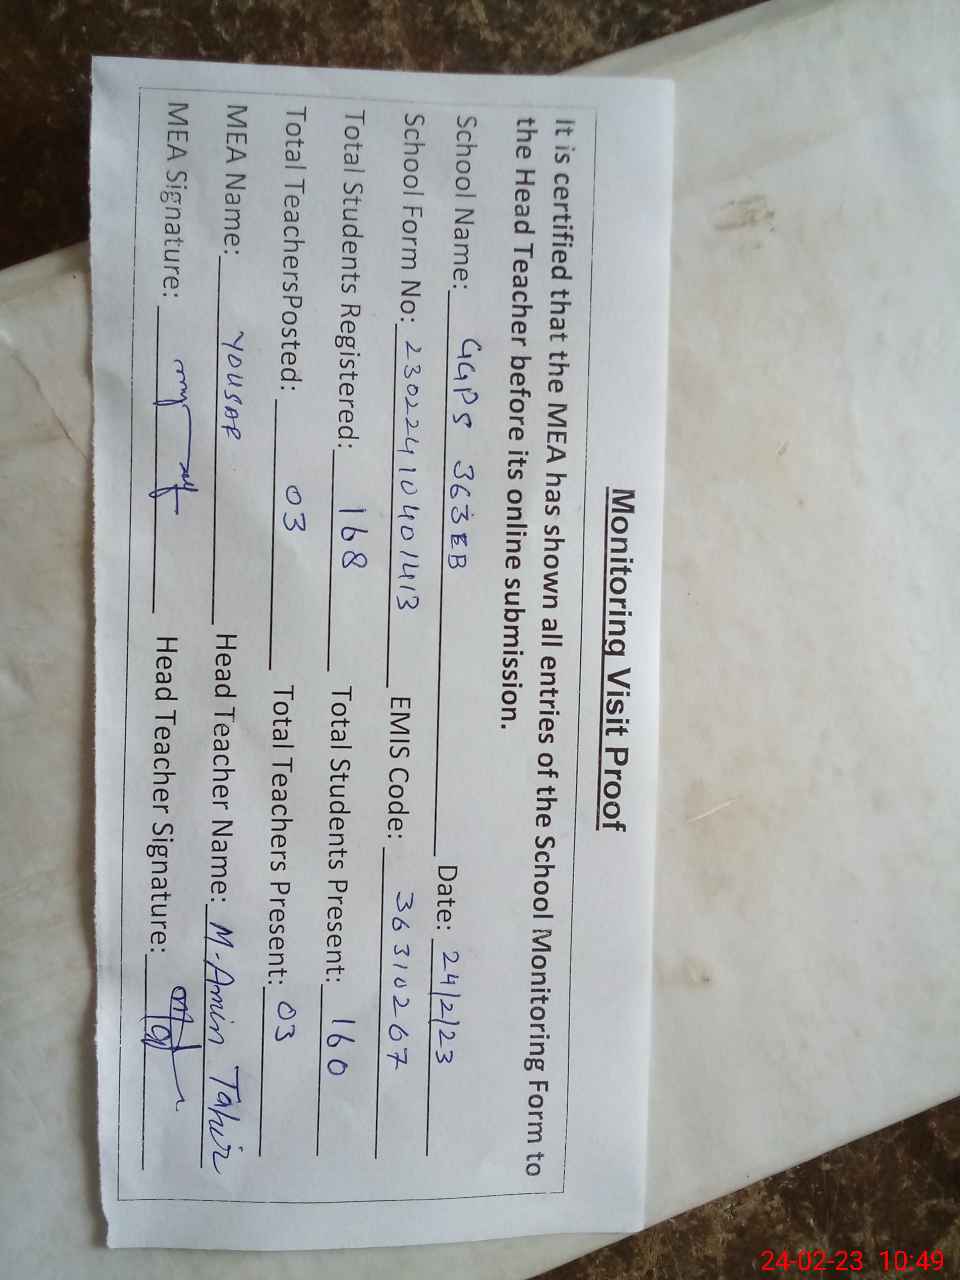 Monitoring Visit Proof
It is certified that the MEA has shown all entries of the School Monitoring Form to
the Head Teacher before its online submission.
School Name: GGPS 363EB Date: 24/2/23
School Form No: 23022410401413 EMIS Code: 36310267
Total Students Registered: 168 Total Students Present: 160
Total TeachersPosted: 03 Total Teachers Present: 03
MEA Name: YOUSAF Head Teacher Name: M. Amin Tahir
MEA Signature: Head Teacher Signature:
24-02-23 10:49